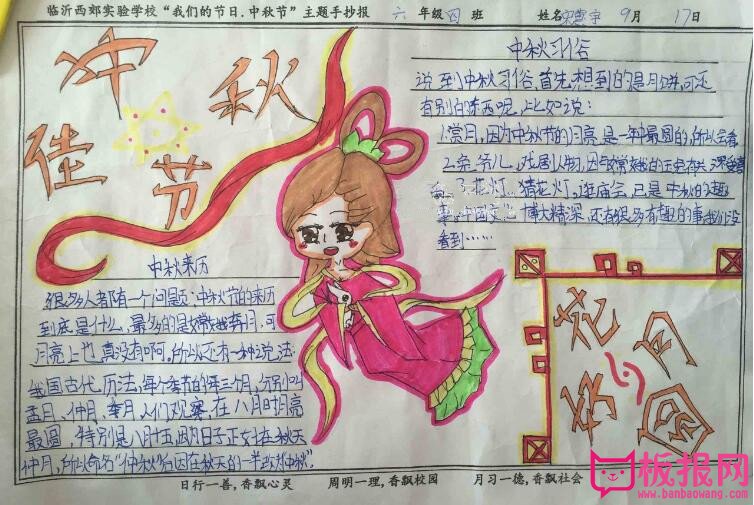 临沂西郊实验学校“我们的节日.中秋节”主题手抄报 六 年级 四 班 姓名 9月 17日
中秋
佳节
中秋习俗
说到中秋习俗,首先想到的是月饼,可还
有别的东西呢,比如说:
1.赏月,因为中秋节的月亮是一年中最圆的,所以会看
2.兔爷儿,戏剧人物,因与嫦娥的玉兔有关,深受喜
3.花灯,猜花灯,逛庙会,已是中秋的趣
事,中国文化博大精深,还有很多有趣的事我们没
看到……
中秋来历
很多人都有一个问题:中秋节的来历
到底是什么,最多的是嫦娥奔月,可
月亮上也真没有啊,所以还有一种说法:
我国古代历法,每个季节的第三个月,分别叫
孟月、仲月、季月,人们观察,在八月时月亮
最圆,特别是八月十五,因为日子正好在秋天
仲月,所以命名“仲秋”
花好月圆
日行一善,香飘心灵 周明一理,香飘校园 月习一德,香飘社会
板报网
www.banbaowang.com